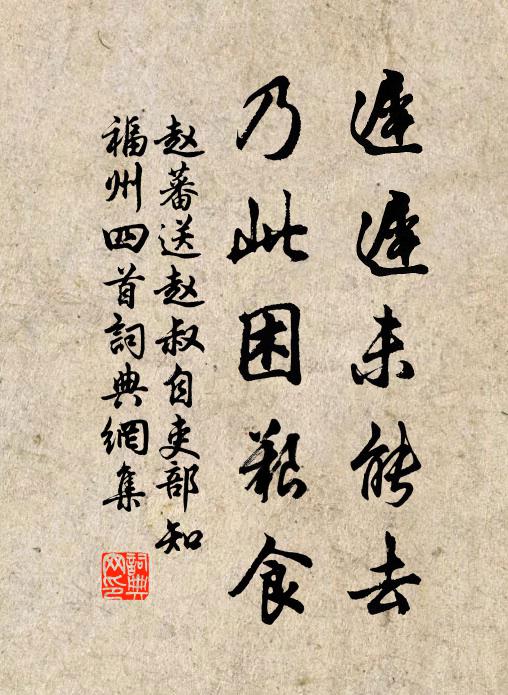 遲遲未能去
乃此困艱食
赵蕃送赵叔自吏部知
福州四首詞典網集
詞典
网印